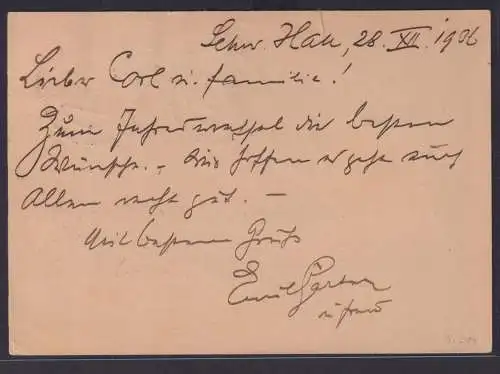 Schw. Hall, 28. XII. 1936
Lieber Carl u. Familie!
Zum Jahreswechsel die besten
Wünsche. - Wir hoffen es geht euch
Allen recht gut. -
Mit bestem Gruß
Emil Gärtner
u. Frau